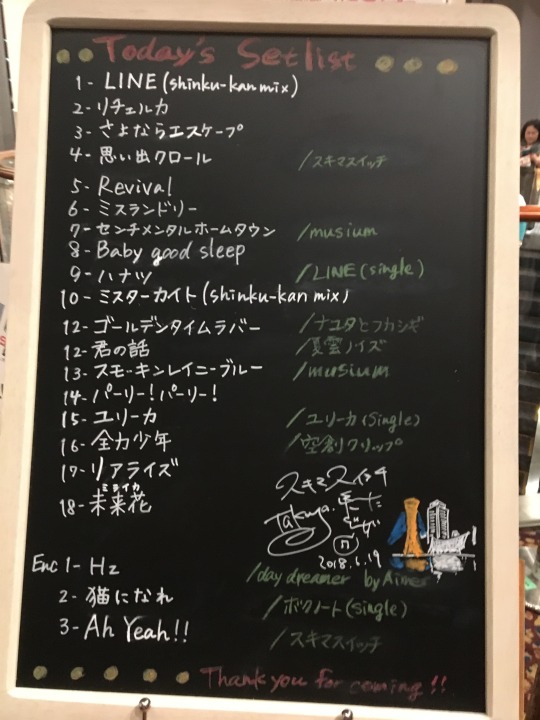 Today's Setlist
1- LINE (shinku-kan mix)
2- リチェルカ
3- さよならエスケープ
4- 思い出クロール /スキマスイッチ
5- Revival
6- ミスランドリー
7- センチメンタルホームタウン /musium
8- Baby good sleep
9- ハナツ /LINE (single)
10- ミスターカイト (shinku-kan mix)
12- ゴールデンタイムラバー /ナユタとフカシギ
12- 君の話 /夏雲ノイズ
13- スモーキンレイニーブルー /musium
14- パーリー!パーリー!
15- ユリーカ /ユリーカ (Single)
16- 全力少年 /空創クリップ
17- リアライズ
ミライカ
18- 未来花
スキマスイッチ
Takuya.
2018.6.19
Enc 1- Hz /day dreamer by Aimer
2- 猫になれ /ボクノート (single)
3- Ah Yeah!! /スキマスイッチ
Thank you for coming!!